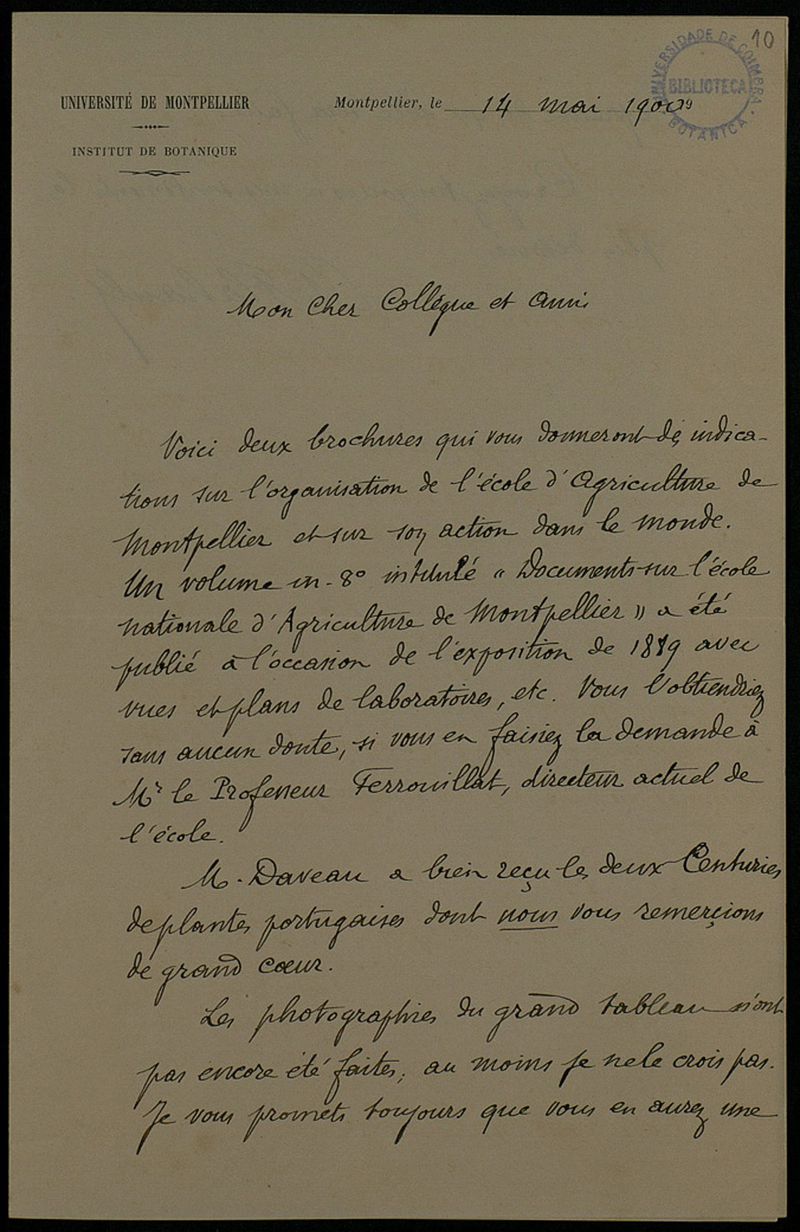 10
UNIVERSIDADE DE COIMBRA
BIBLIOTECA
BOTANICA
UNIVERSITÉ DE MONTPELLIER
INSTITUT DE BOTANIQUE
Montpellier, le 14 mai 1900
Mon cher Collègue et ami
Voici deux brochures qui vous donneront des indica-
tions sur l'organisation de l'école d'Agriculture de
Montpellier et sur son action dans le monde.
Un volume in-8° intitulé « Documents sur l'école
nationale d'Agriculture de Montpellier » a été
publié à l'occasion de l'exposition de 1889 avec
vues et plans de laboratoires, etc. Vous l'obtiendriez
sans aucun doute, si vous en faisiez la demande à
Mr le Professeur Ferrouillat, directeur actuel de
l'école.
M. Daveau a bien reçu les deux Centuries
de plantes portugaises dont nous vous remerçions
de grand cœur.
Les photographies du grand tableau n'ont
pas encore été faites; au moins je ne le crois pas.
Je vous promets toujours que vous en aurez une